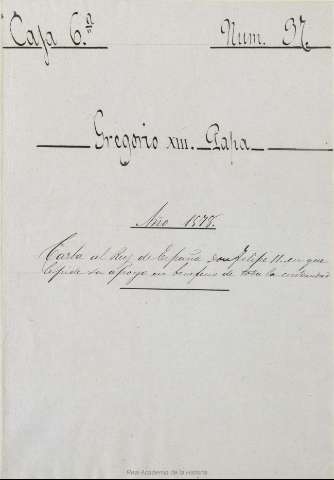 Caja 6.ª Num. 37
Gregorio XIII. Papa
Año 1578.
Carta al Rey de España don Felipe II. en que
le pide su apoyo en beneficio de toda la cristiandad
Real Academia de la Historia